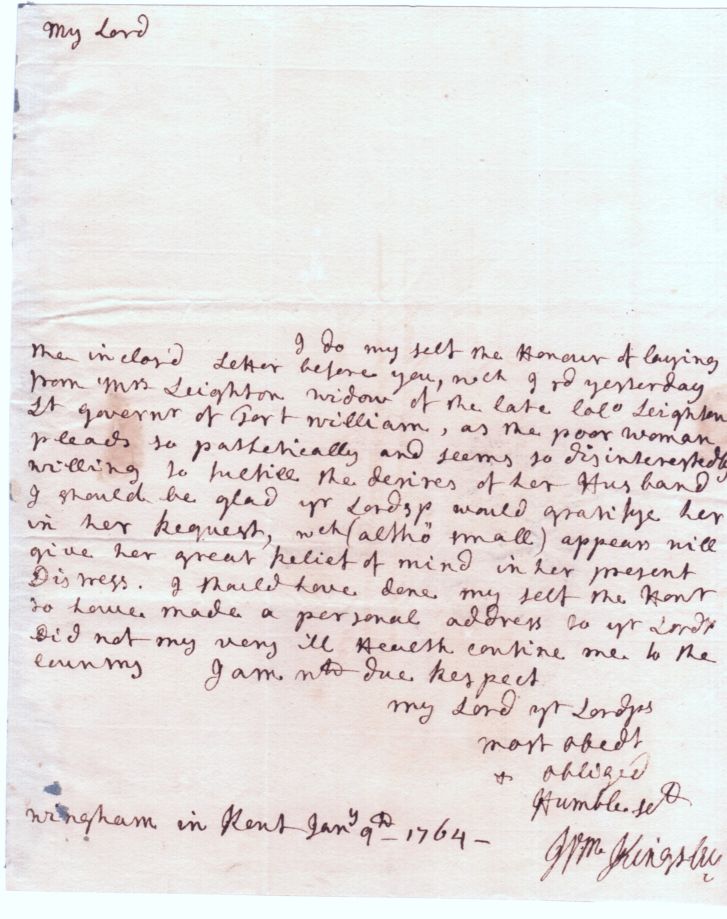 My Lord
I do my self the Honour of laying
the inclos'd Letter before you, wch I rd yesterday
from Mrs Leighton widow of the late Colo Leighton
Lt governr of Fort william, as the poor woman
pleads so pathetically and seems so disinterestedly
willing to fulfill the desires of her Husband
I should be glad yr Lordsp would gratifye her
in her Request, wch (altho small) appears will
give her great Relief of mind in her present
Distress. I should have done my self the Honr
to have made a personal address to yr Lordsp
did not my very ill Health confine me to the
country I am wth due Respect
my Lord yr Lordsps
most obedt
& obliged
Humble. set
wingham in Kent Jany 9th - 1764 -
Wm Kingsley